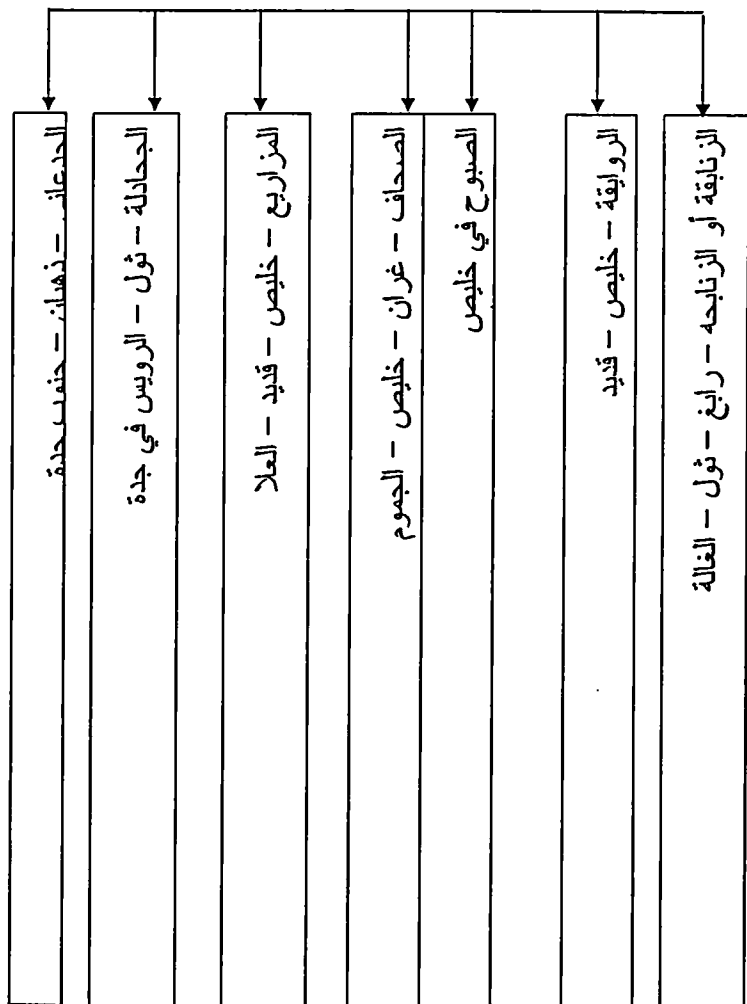 الزنابقة أو الزنابحه – رابغ – ثول – الغالة
الروايقة – خليص – قديد
الصبوح في خليص
الصحاف – غران – خليص – الجموم
المزاريع – خليص – قديد – العلا
الجحادلة – ثول – الرويس في جدة
– ذهبان – جنوب جدة